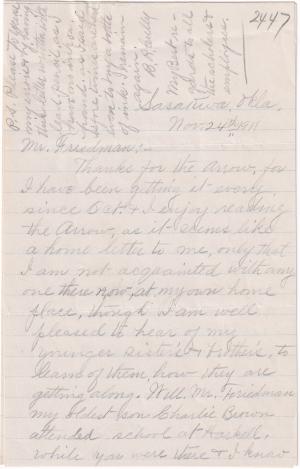 2447
P.S. Please excuse
my errors & by having
this letter written with
lead pencil, as I
have no ink
home times are hard
even to buy a bottle
of ink. I remain
again.
B. Rawley
My Best re-
gards to all
the scholars &
employees.
Sasakwa, Okla.
Nov. 24th 1911
Mr. Friedman:-
Thanks for the Arrow, for
I have been getting it every
since Oct. & I enjoy reading
the Arrow, as it seems like
a home letter to me, only that
I am not acquainted with any
one there now, at my own home
place, though I am well
pleased to hear of my
younger sister's & brother's, to
learn of them, how they are
getting along. Well, Mr. Friedman
my oldest son Charlie Brown
attended school at Haskell,
while you were there & I know